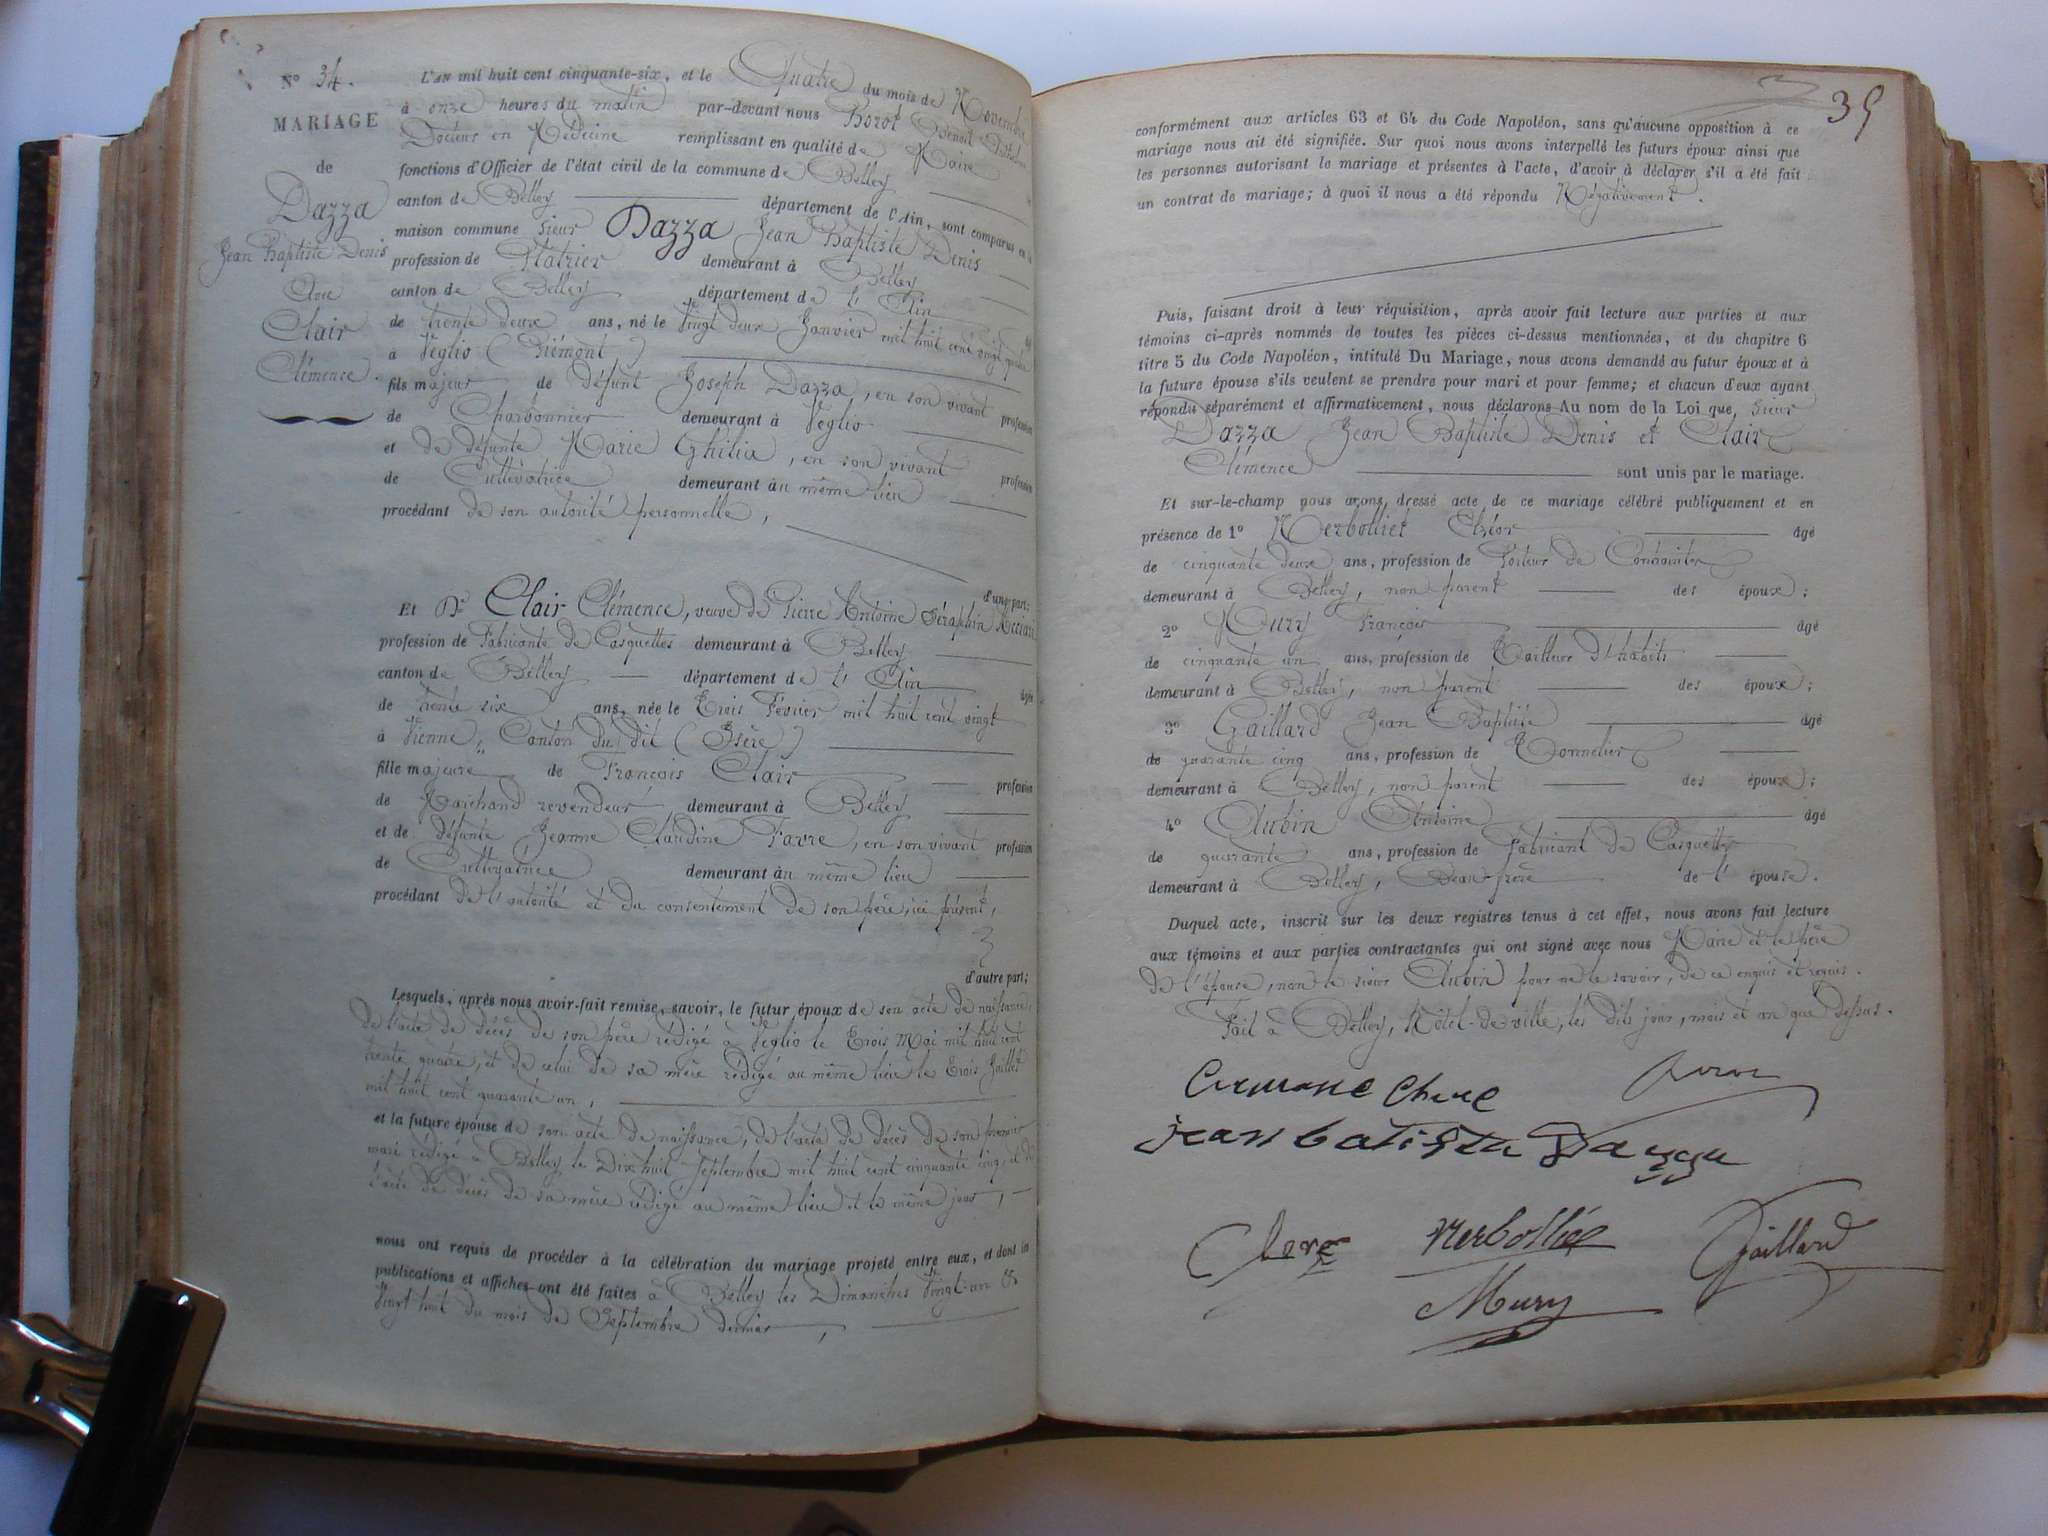 N° 34.
MARIAGE
de
Dazza
Jean Baptiste Denis
Avec
Clair
Clémence.
L'AN mil huit cent cinquante-six, et le Quatre du mois de Novembre
à onze heures du matin par-devant nous Horot Benoit
Docteur en Médecine remplissant en qualité de Maire
fonctions d'Officier de l'état civil de la commune de Belley
canton de Belley département de l'Ain, sont comparus en la
maison commune sieur Dazza Jean Baptiste Denis
profession de Platrier demeurant à Belley
canton de Belley département de l'Ain
de trente deux ans, né le Vingt deux Janvier mil huit cent vingt quatre
à Veglio (Piémont)
fils majeur de défunt Joseph Dazza, en son vivant profession
de Charbonnier demeurant à Veglio
et de défunte Marie Ghilia, en son vivant profession
de Cultivatrice demeurant au même lieu
procédant de son autorité personnelle,
d'une part;
Et De Clair Clémence, veuve de Pierre Antoine Séraphin
profession de Fabricante de Casquettes demeurant à Belley
canton de Belley département de l'Ain âgée
de trente six ans, née le Trois Février mil huit cent vingt
à Vienne, Canton du dit (Isère)
fille majeure de François Clair profession
de Marchand revendeur demeurant à Belley
et de défunte Jeanne Claudine Favre, en son vivant profession
de Cultivatrice demeurant au même lieu
procédant de l'autorité et du consentement de son père, ici présent,
d'autre part;
Lesquels, après nous avoir fait remise, savoir, le futur époux de son acte de naissance,
de l'acte de décès de son père rédigé à Veglio le Trois Mai mil huit cent
trente quatre, et de celui de sa mère rédigé au même lieu le Trois Juillet
mil huit cent quarante un,
et la future épouse de son acte de naissance, de l'acte de décès de son premier
mari rédigé à Belley le Dix huit Septembre mil huit cent cinquante cinq, et de
l'acte de décès de sa mère rédigé au même lieu et le même jour,
nous ont requis de procéder à la célébration du mariage projeté entre eux, et dont les
publications et affiches ont été faites à Belley les Dimanches Vingt-un &
Vingt huit du mois de Septembre dernier,
35
conformément aux articles 63 et 64 du Code Napoléon, sans qu'aucune opposition à ce
mariage nous ait été signifiée. Sur quoi nous avons interpellé les futurs époux ainsi que
les personnes autorisant le mariage et présentes à l'acte, d'avoir à déclarer s'il a été fait
un contrat de mariage; à quoi il nous a été répondu Négativement.
Puis, faisant droit à leur réquisition, après avoir fait lecture aux parties et aux
témoins ci-après nommés de toutes les pièces ci-dessus mentionnées, et du chapitre 6
titre 5 du Code Napoléon, intitulé Du Mariage, nous avons demandé au futur époux et à
la future épouse s'ils veulent se prendre pour mari et pour femme; et chacun d'eux ayant
répondu séparément et affirmativement, nous déclarons Au nom de la Loi que, sieur
Dazza Jean Baptiste Denis et Clair
Clémence sont unis par le mariage.
Et sur-le-champ nous avons dressé acte de ce mariage célébré publiquement et en
présence de 1° Nerbollier âgé
de cinquante deux ans, profession de Porteur de Contraintes
demeurant à Belley, non parent des époux;
2° Mury François âgé
de cinquante un ans, profession de Tailleur d'habits
demeurant à Belley, non parent des époux;
3° Gaillard Jean Baptiste âgé
de quarante cinq ans, profession de Tonnelier
demeurant à Belley, non parent des époux;
4° Aubin Antoine âgé
de quarante ans, profession de Fabricant de Casquettes
demeurant à Belley, Beau-frère de l'épouse.
Duquel acte, inscrit sur les deux registres tenus à cet effet, nous avons fait lecture
aux témoins et aux parties contractantes qui ont signé avec nous Maire et le père
de l'épouse, non le sieur Aubin pour ne le savoir, de ce enquis et requis.
Fait à Belley, Hôtel-de-ville, les dits jour, mois et an que dessus.
jean batista Dazza
Nerbollier
Gaillard
Mury